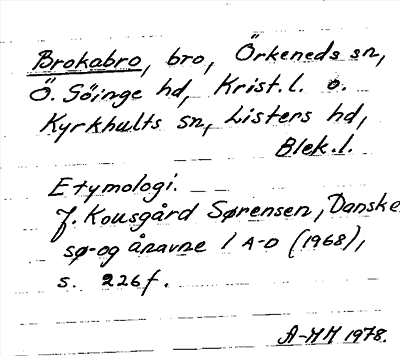 Brokabro, bro, Örkeneds sn,
Ö. Göinge hd, Krist. l. o.
Kyrkhults sn, Listers hd,
Blek. l.
Etymologi.
J. Kousgård Sørensen, Danske
sø- og ånavne 1 A-D (1968),
s. 226 f.
A-MH 1978.